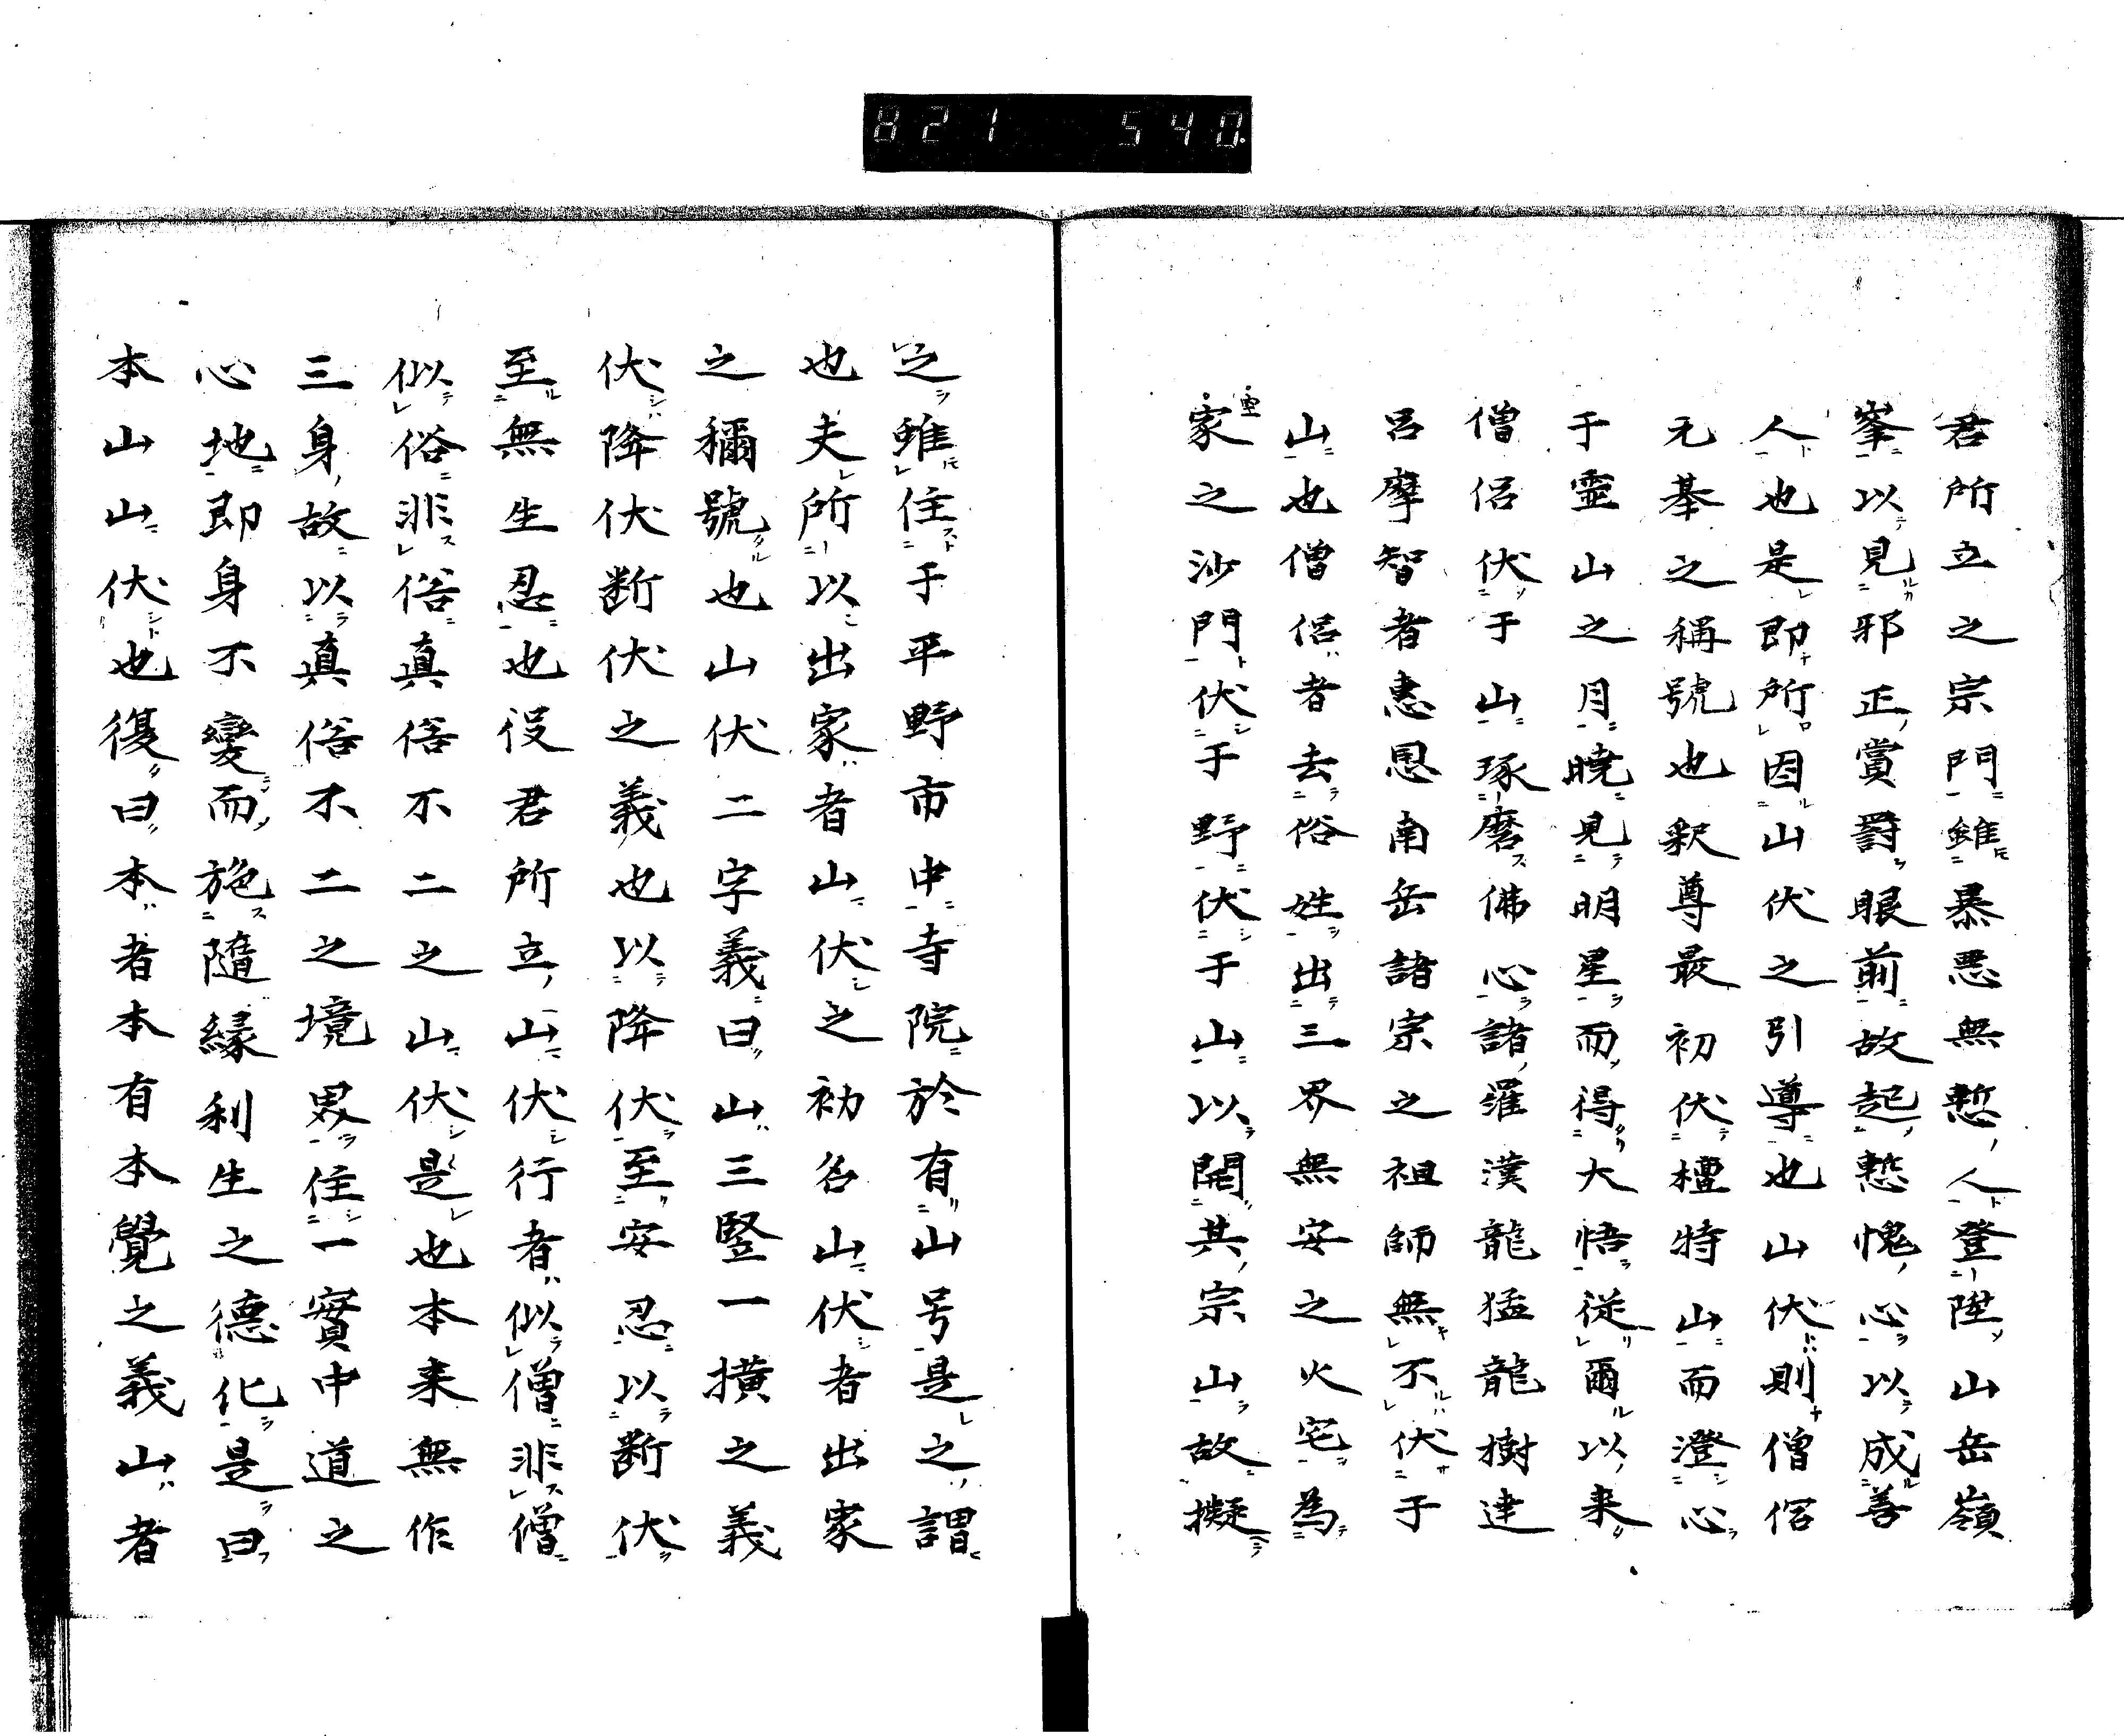 821 540
君所立之宗門雖暴悪無慙人登陞山岳嶺
峯以見邪正賞罸眼前故起慙愧心以成善
人也是即所因山伏之引導也山伏則僧俗
元拳之稱號也釈尊最初伏檀特山而澄心
于霊山之月暁見明星而得大悟従爾以来
僧侶伏于山琢磨佛心諸羅漢龍猛龍樹達
呂摩智者惠恩南岳諸宗之祖師無不伏于
山也僧侶者去俗姓出三界無安之火宅為
家之沙門伏于野伏于山以開其宗山故擬
之雖住于平野市中寺院於有山号是之謂
也夫所以出家者山伏之初名山伏者出家
之稱號也山伏二字義曰山三竪一横之義
伏降伏断伏之義也以降伏至安忍以断伏
至無生忍也役君所立山伏行者似僧非僧
似俗非俗真俗不二之山伏是也本来無作
三身故以真俗不二之境界住一實中道之
心地即身不變而施隨縁利生之德化是曰
本山山伏也復曰本者本有本覺之義山者